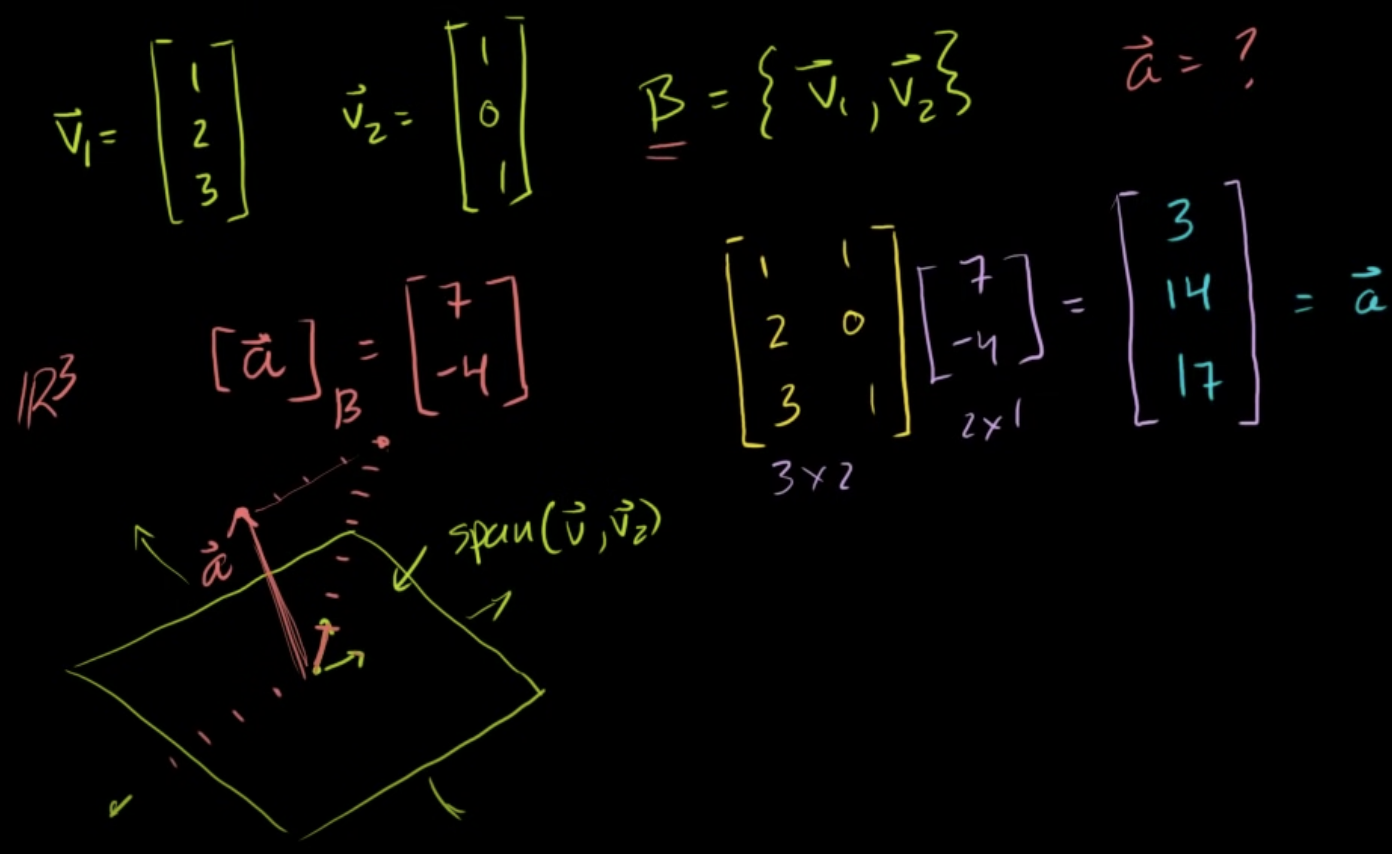 v⃗₁ = [1 2 3] v⃗₂ = [1 0 1] B = {v⃗₁, v⃗₂} a⃗ = ?
ℝ³ [a⃗]_B = [7 -4]
[1 1
2 0
3 1] [7 -4] = [3 14 17] = a⃗
3×2 2×1
span(v⃗, v⃗₂)
a⃗